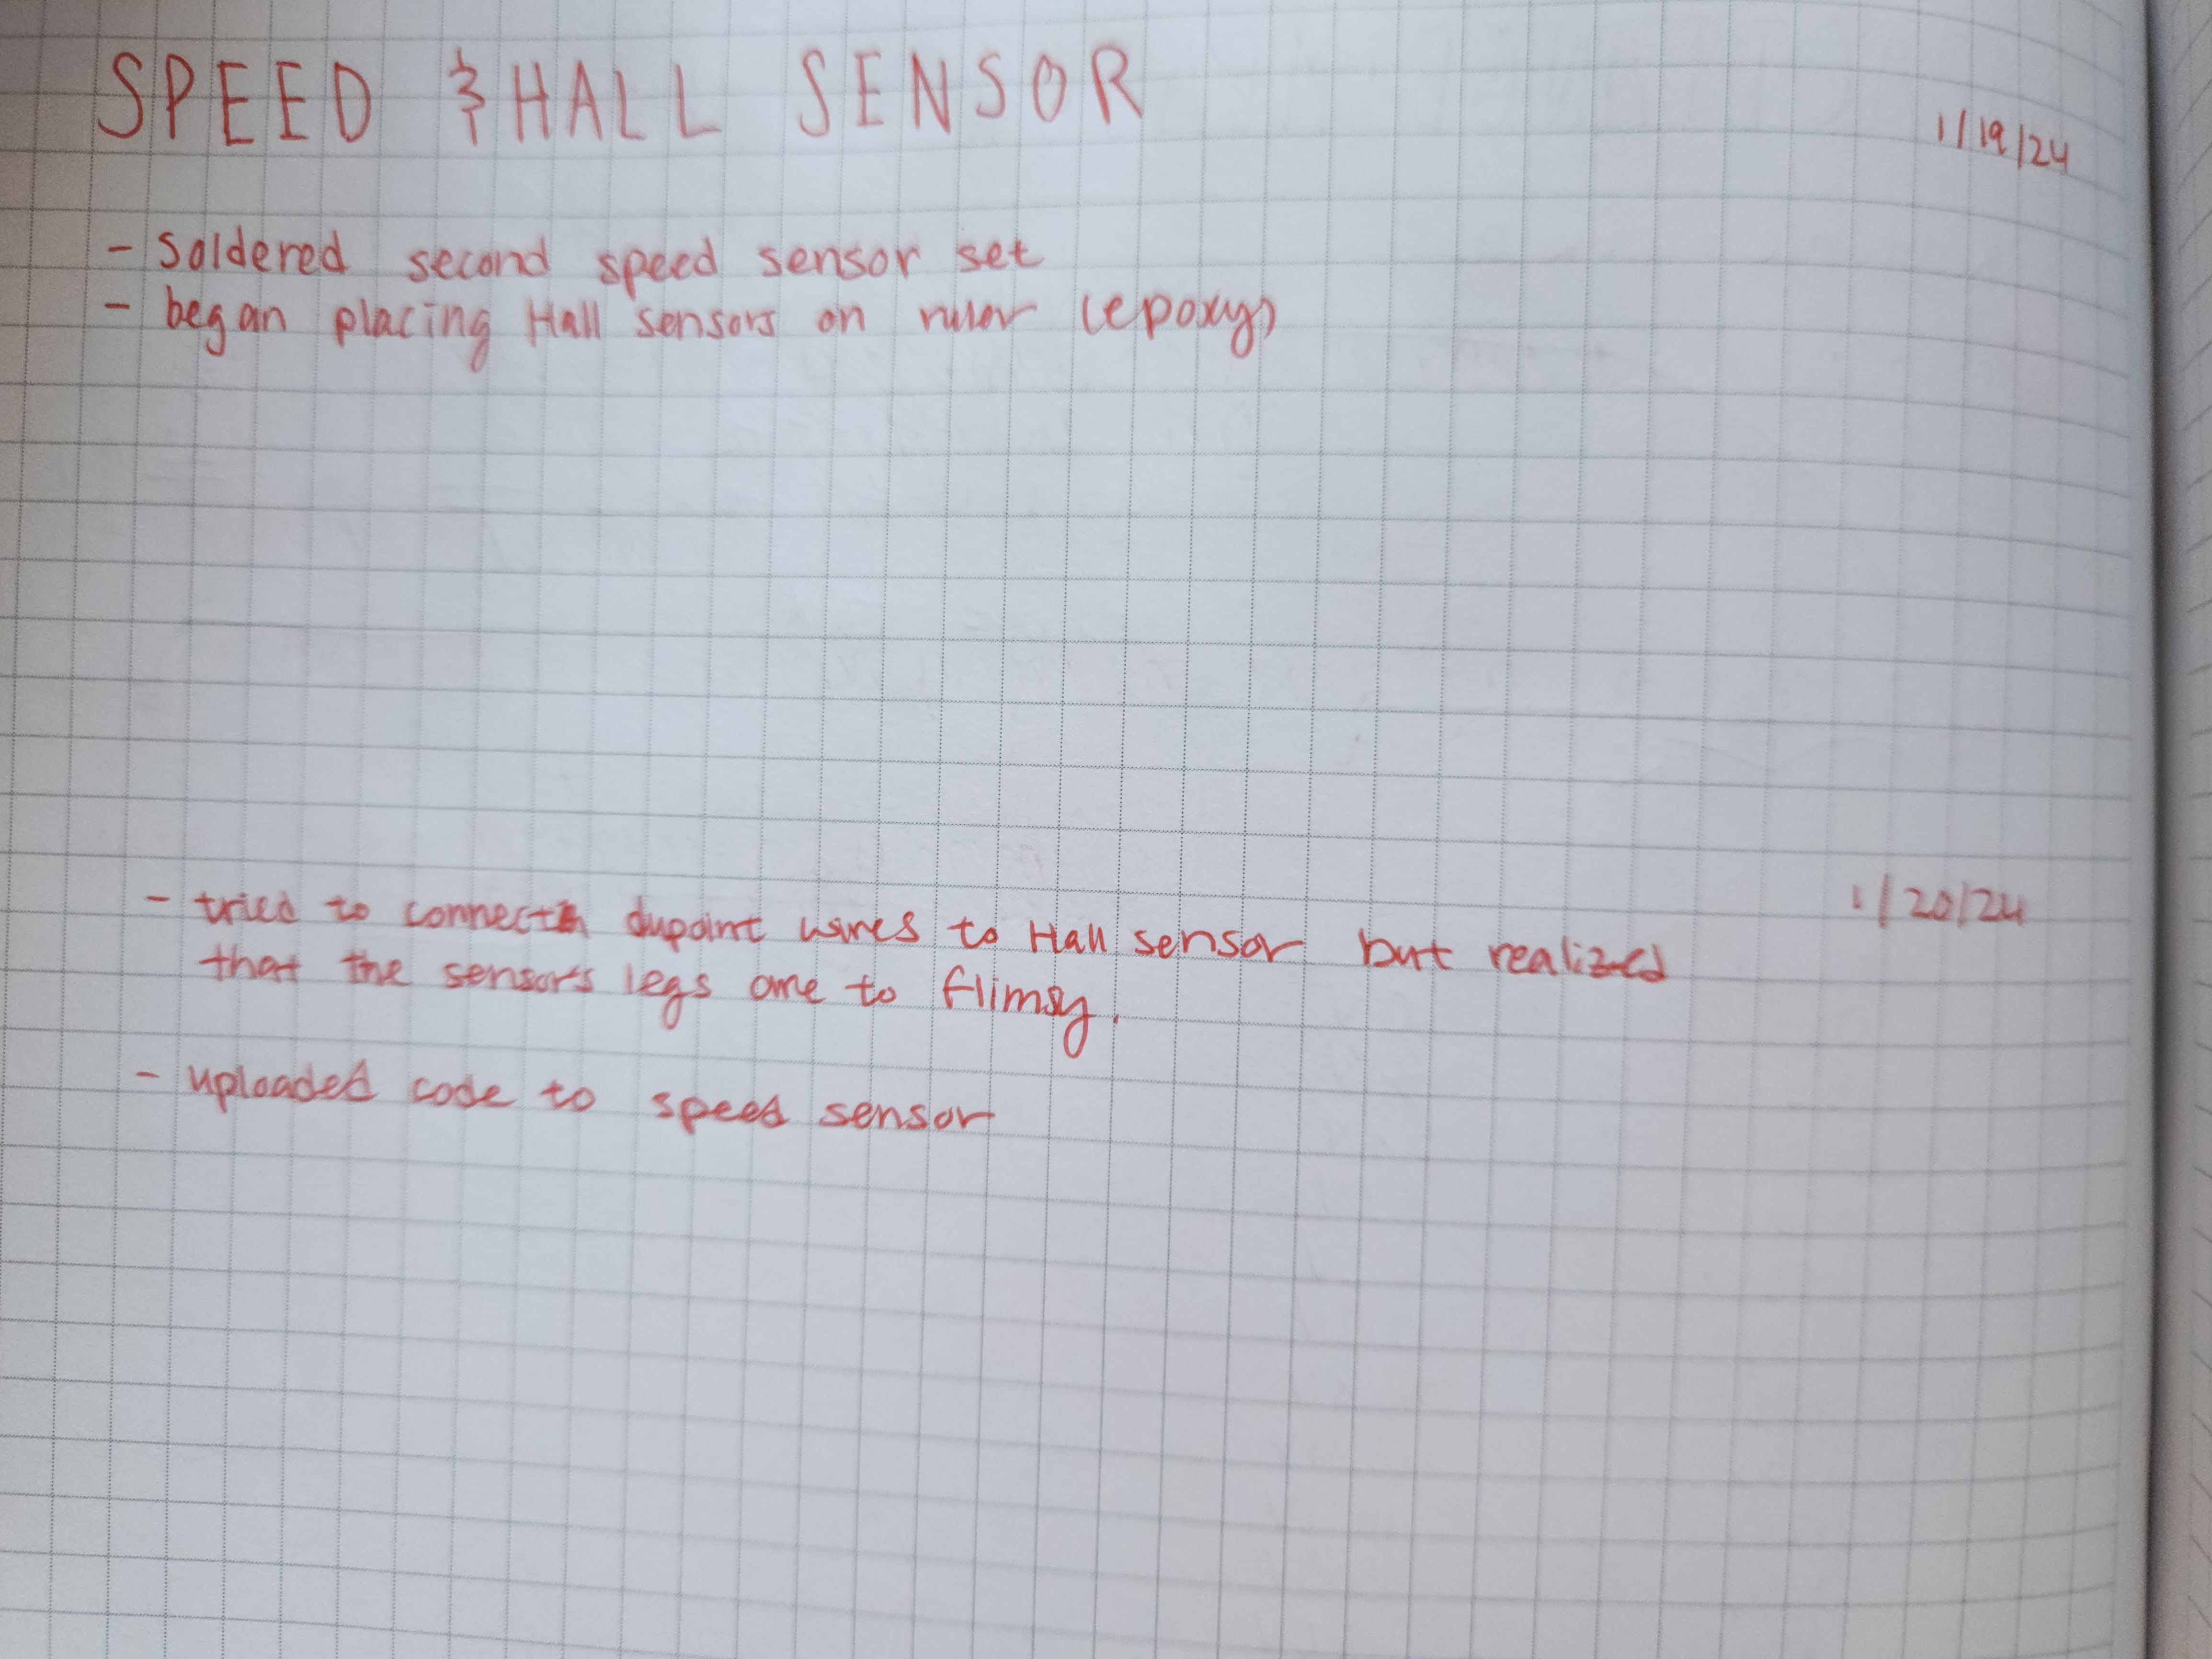 SPEED & HALL SENSOR
1/19/24
- Soldered second speed sensor set
- began placing Hall sensors on ruler (epoxy)
1/20/24
- tried to connect dupoint wires to Hall sensor but realized
that the sensors legs are to flimsy.
- uploaded code to speed sensor